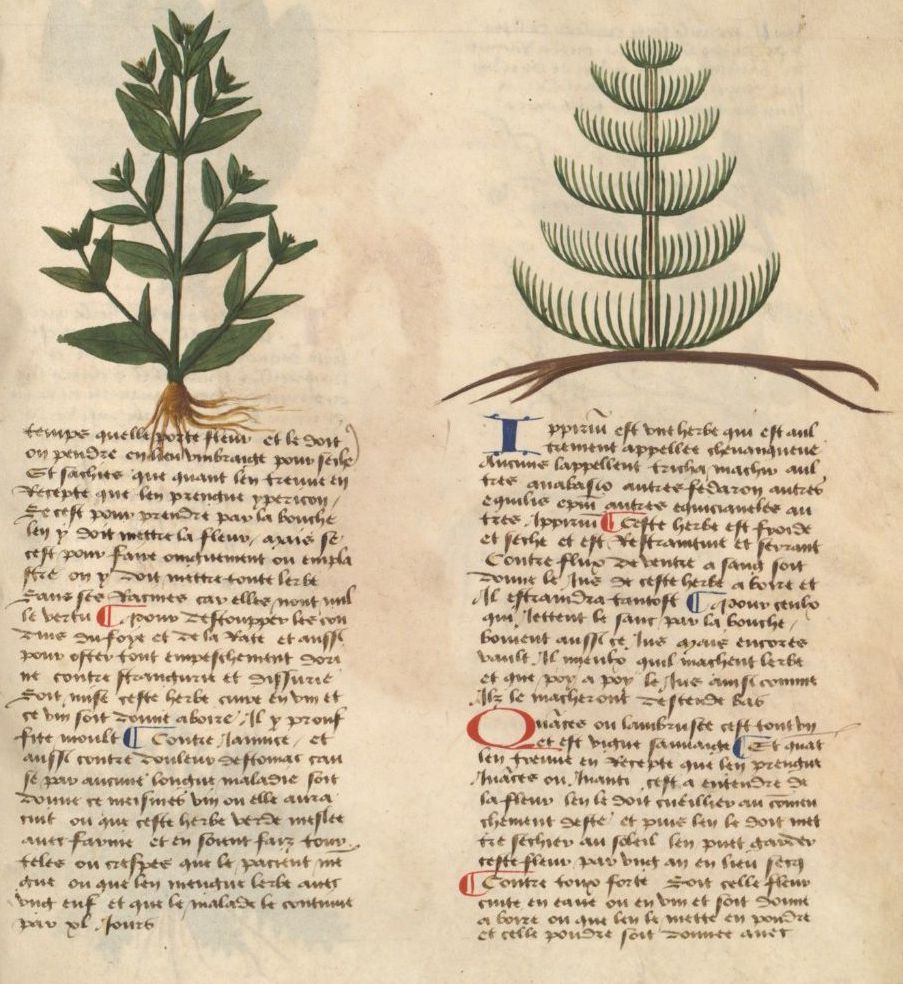 temps quelle porte fleur et le doit
on pendre en lieu umbraige pour seche
Et sachies que quant len treuve en
Recepte que len prengne ypericon /
Se cest pour prendre par la bouche
len y doit mettre la fleur / mais se
cest pour faire oingnement ou empla
stre on y doit mettre toute lerbe
sans ses Racines car elles nont nul
le vertu ¶ Pour destoupper les con
duis du foye et de la Rate et aussi
pour oster tout empeschement dori
ne contre strangurie et dissurie
Soit mise ceste herbe cuire en vin et
ce vin soit donne a boire / Il y prouf
fite moult ¶ Contre Jaunice / et
aussi contre douleur destomac cau
se par aucune longue maladie soit
donne ce meismes vin ou elle aura
cuit ou que ceste herbe verde meslee
avec farine et en soient faiz tour
teles ou crespes que le pacient me
gue ou que len mengue lerbe avec
vng euf et que le malade le continue
par xl Jours
Ippirum est vne herbe qui est aul
trement appellee chevanqueue
Aucuns lappellent tricha machin aul
tres anabasio autres fedaron autres
equilis epiu autres equicianeles au
tres Ippirum ¶ Ceste herbe est froide
et seche et est Restraintive et serrant
Contre flux de ventre a sang soit
donne le Jus de ceste herbe a boire et
Il estraindra tantost ¶ Pour ceulx
qui Jettent le sanc par la bouche /
boivent aussi ce Jus Mais encores
vault Il mieulx quil machent lerbe
et que poy a poy le Jus ainsi comme
Ilz le macheront destende bas
Quaces ou lambrusce cest tout vn
et est vigne sauvaige ¶ Et quat
len treuve en Recepte que len prengne
Inaces ou Inanti cest a entendre de
la fleur len le doit cueillier au comen
chement deste et puis len le doit met
tre sechier au soleil len puet garder
ceste fleur par vng an en lieu secq
¶ Contre toux forte Soit celle fleur
cuite en eaue ou en vin et soit donne
a boire ou que len le mette en poudre
et celle poudre soit donnee avec